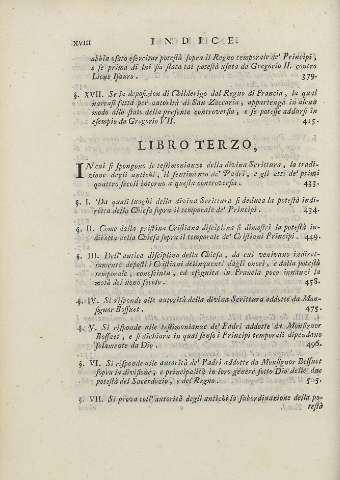 XVIII INDICE.
abbia usato esercitar potestà sopra il Regno temporale de' Principi,
e se prima di lui sia stata tal potestà usata da Gregorio II. contro
Lione Isauro. 379.
§. XVII. Se la deposizion di Childerigo dal Regno di Francia, la qual
narrasi fatta per autorità di San Zaccaria, appartenga in alcun
modo allo stato della presente controversia, e se potesse addursi in
esempio da Gregorio VII. 415.
LIBRO TERZO,
IN cui si spongono le testimonianze della divina Scrittura, la tradi-
zione degli antichi, il sentimento de' Padri, e gli atti de' primi
quattro secoli intorno a questa controversia. 433.
§. I. Da quali luoghi della divina Scrittura si deduca la potestà indi-
retta della Chiesa sopra il temporale de' Principi. 434.
§. II. Come dalla pristina Cristiana disciplina si dimostri la potestà in-
diretta della Chiesa sopra il temporale de' Cristiani Principi. 449.
§. III. Dell'antica disciplina della Chiesa, da cui venivano indiret-
tamente deposti i Cristiani delinquenti dagli onori, e dalla potestà
temporale, conosciuta, ed eseguita in Francia poco innanzi la
metà del nono secolo. 458.
§. IV. Si risponde alle autorità della divina Scrittura addotte da Mon-
signor Bossuet. 475.
§. V. Si risponde alle testimonianze de' Padri addotte da Monsignor
Bossuet, e si dichiara in qual senso i Principi temporali dipendano
solamente da Dio. 496.
§. VI. Si risponde alle autorità de' Padri addotte da Monsignor Bossuet
sopra la divisione, e principalità in loro genere sotto Dio delle due
potestà del Sacerdozio, e del Regno. 515.
§. VII. Si prova coll'autorità degli antichi la subordinazione della po-
testà